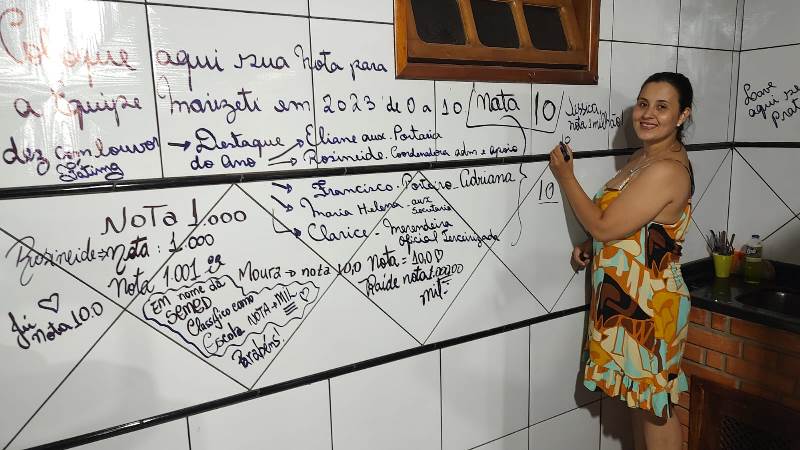 Coloque aqui sua Nota para
a Equipe Marizeti em 2023 de 0 a 10
Nata 10
Jessica
nota 1 milhão
10
dez com louvor
Fátima
→ Destaque do Ano
→ Eliane aux. Portaria
→ Rosineide - Coordenadora adm e apoio
→ Francisco - Porteiro - Adriana
→ Maria Helena - aux Secretaria
→ Clarice - Merendeira oficial Terceirizada
10
NOTA 1.000
Rosineide ⇒ Nota: 1.000
Nota 1.001
Em nome da
SEMED
Classifico como
Escola NOTA MIL
Parabéns!
Moura → nota 10,0
Nota = 10,0 ♡
nota 1.000.000
mil
Nota 10.0
Lave
aqui seu
prato